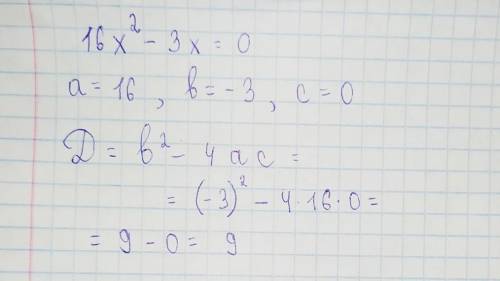 16x² - 3x = 0
a = 16, b = -3, c = 0
Д = b² - 4ac =
= (-3)² - 4·16·0 =
= 9 - 0 = 9